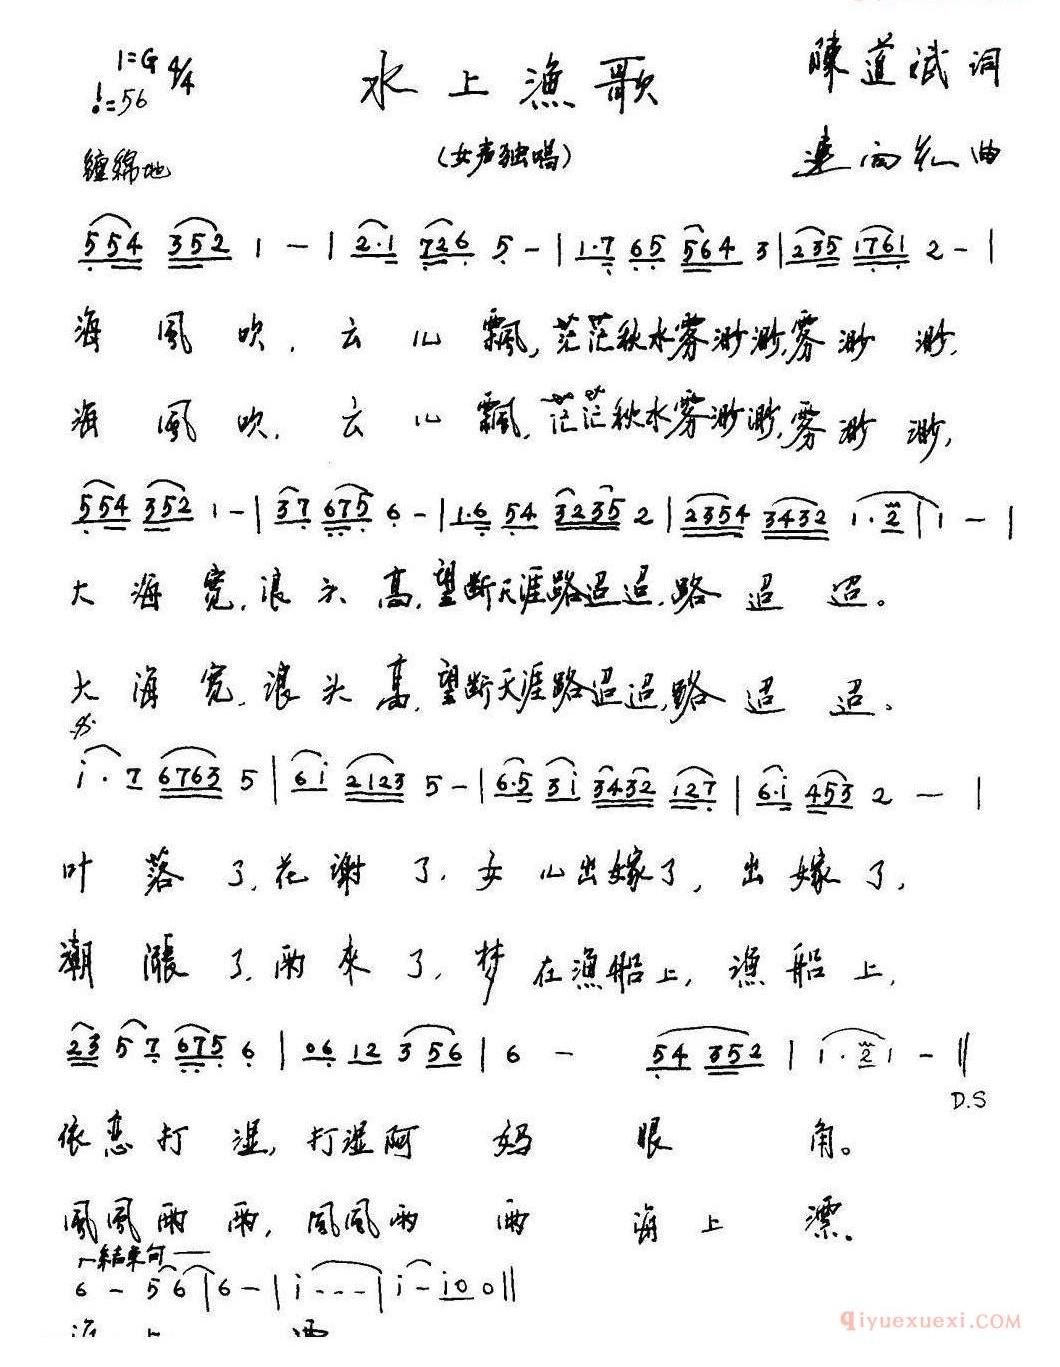 1=G 4/4
♩=56
水上漁歌
陳道斌詞
(女声独唱)
纏綿地
連向先曲
554 352 1 - | 2·1 726 5 - | 1·7 65 564 3 | 235 1761 2 - |
海風吹，云儿飄，茫茫秋水雾渺渺，雾渺渺，
海風吹，云儿飄，茫茫秋水雾渺渺，雾渺渺，
554 352 1 - | 37 675 6 - | 1·6 54 3235 2 | 2354 3432 1·2 | 1 - |
大海宽，浪头高，望断天涯路迢迢，路迢迢。
大海宽，浪头高，望断天涯路迢迢，路迢迢。
i·7 6763 5 | 6i 2123 5 - | 6·5 3i 3432 127 | 6·i 453 2 - |
叶落了，花谢了，女儿出嫁了，出嫁了，
潮漲了，雨來了，梦在漁船上，漁船上，
23 57 675 6 | 06 12 3 56 | 6 - 54 352 | 1·2 1 - ||
D.S
依恋打湿，打湿阿妈眼角。
風風雨雨，風風雨雨海上漂。
結束句
6 - 5 6 | 6 - | i - - - | i - i0 0 ||
海上漂
qiyuexuexi.COM